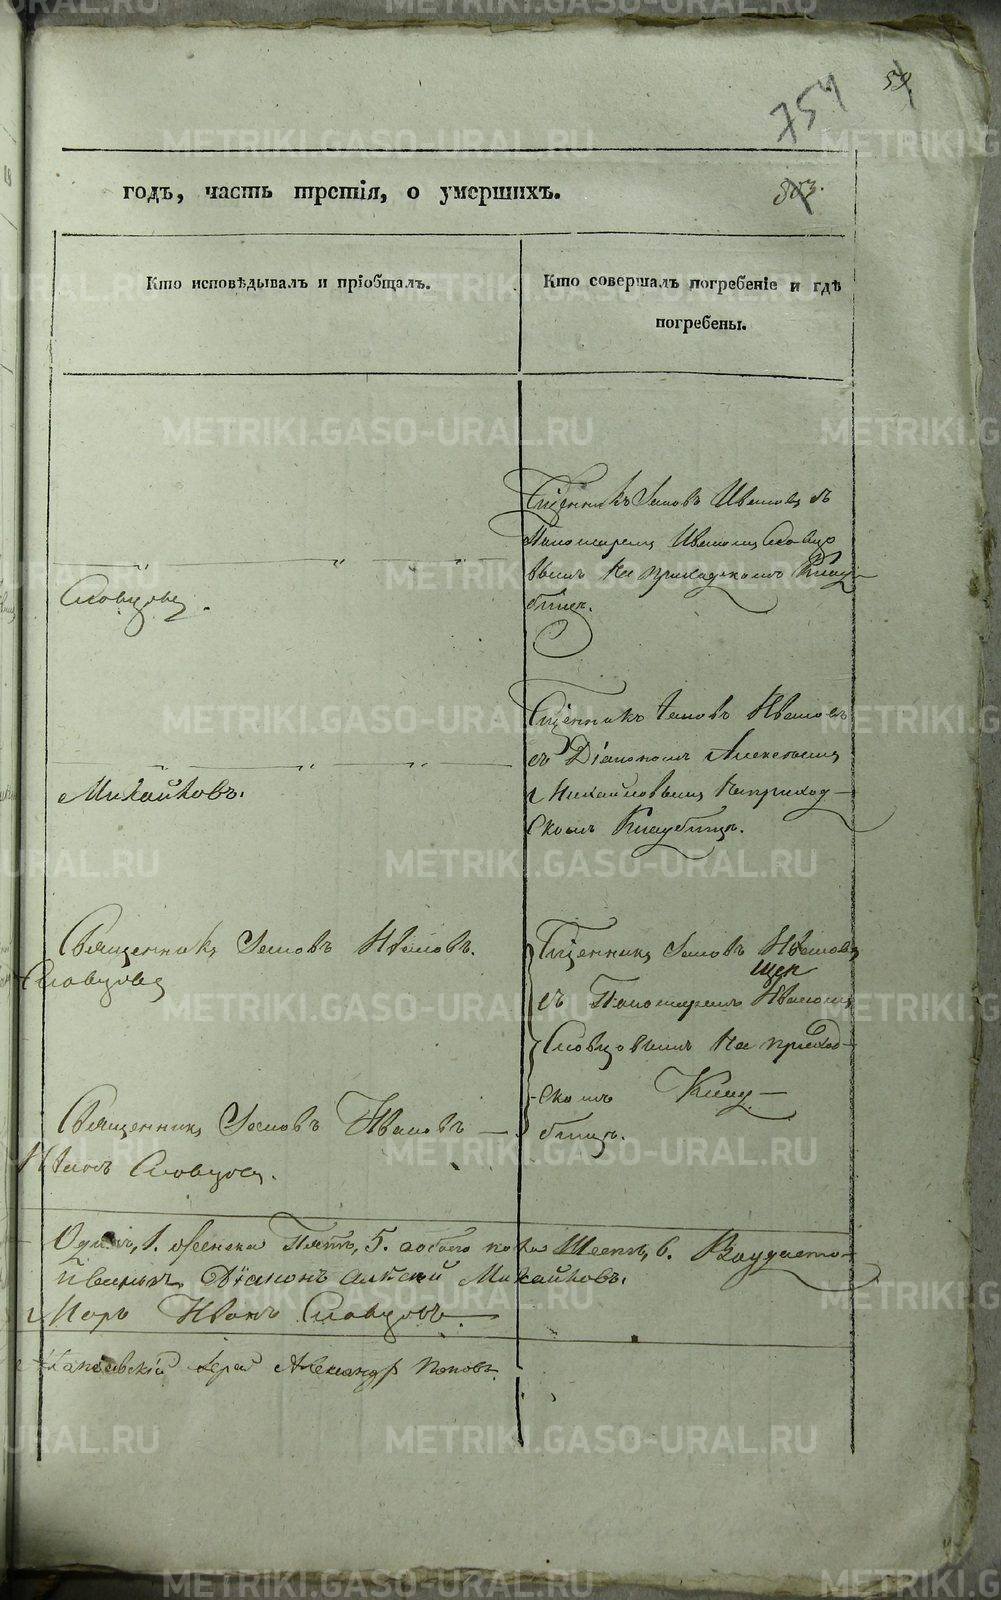 754
59
годъ, часть третія, о умершихъ.
803.
Кто исповѣдывалъ и пріобщалъ.
Кто совершалъ погребеніе и гдѣ
погребены.
Сщенникъ Іаковъ Ивановъ съ
Пономаремъ Иваномъ Словцо
вымъ на приходскомъ Клад-
бищѣ.
Словцовъ.
Сщенникъ Іаковъ Ивановъ
съ Діакономъ Алексѣемъ
Михайловымъ на приход-
скомъ Кладбищѣ.
Михайловъ.
Священникъ Іаковъ Ивановъ.
Словцовъ
Сщенникъ Іаковъ Ивановъ
съ Пономаремъ Иваномъ
Словцовымъ на приход-
скомъ Клад-
бищѣ.
Священникъ Іаковъ Ивановъ
Иванъ Словцовъ.
Одинъ, 1. женска Пять, 5. обоего пола Шесть, 6.
Діаконъ Алексѣй Михайловъ.
Иванъ Словцовъ.
Іерей Александръ Поповъ.
METRIKI.GASO-URAL.RU